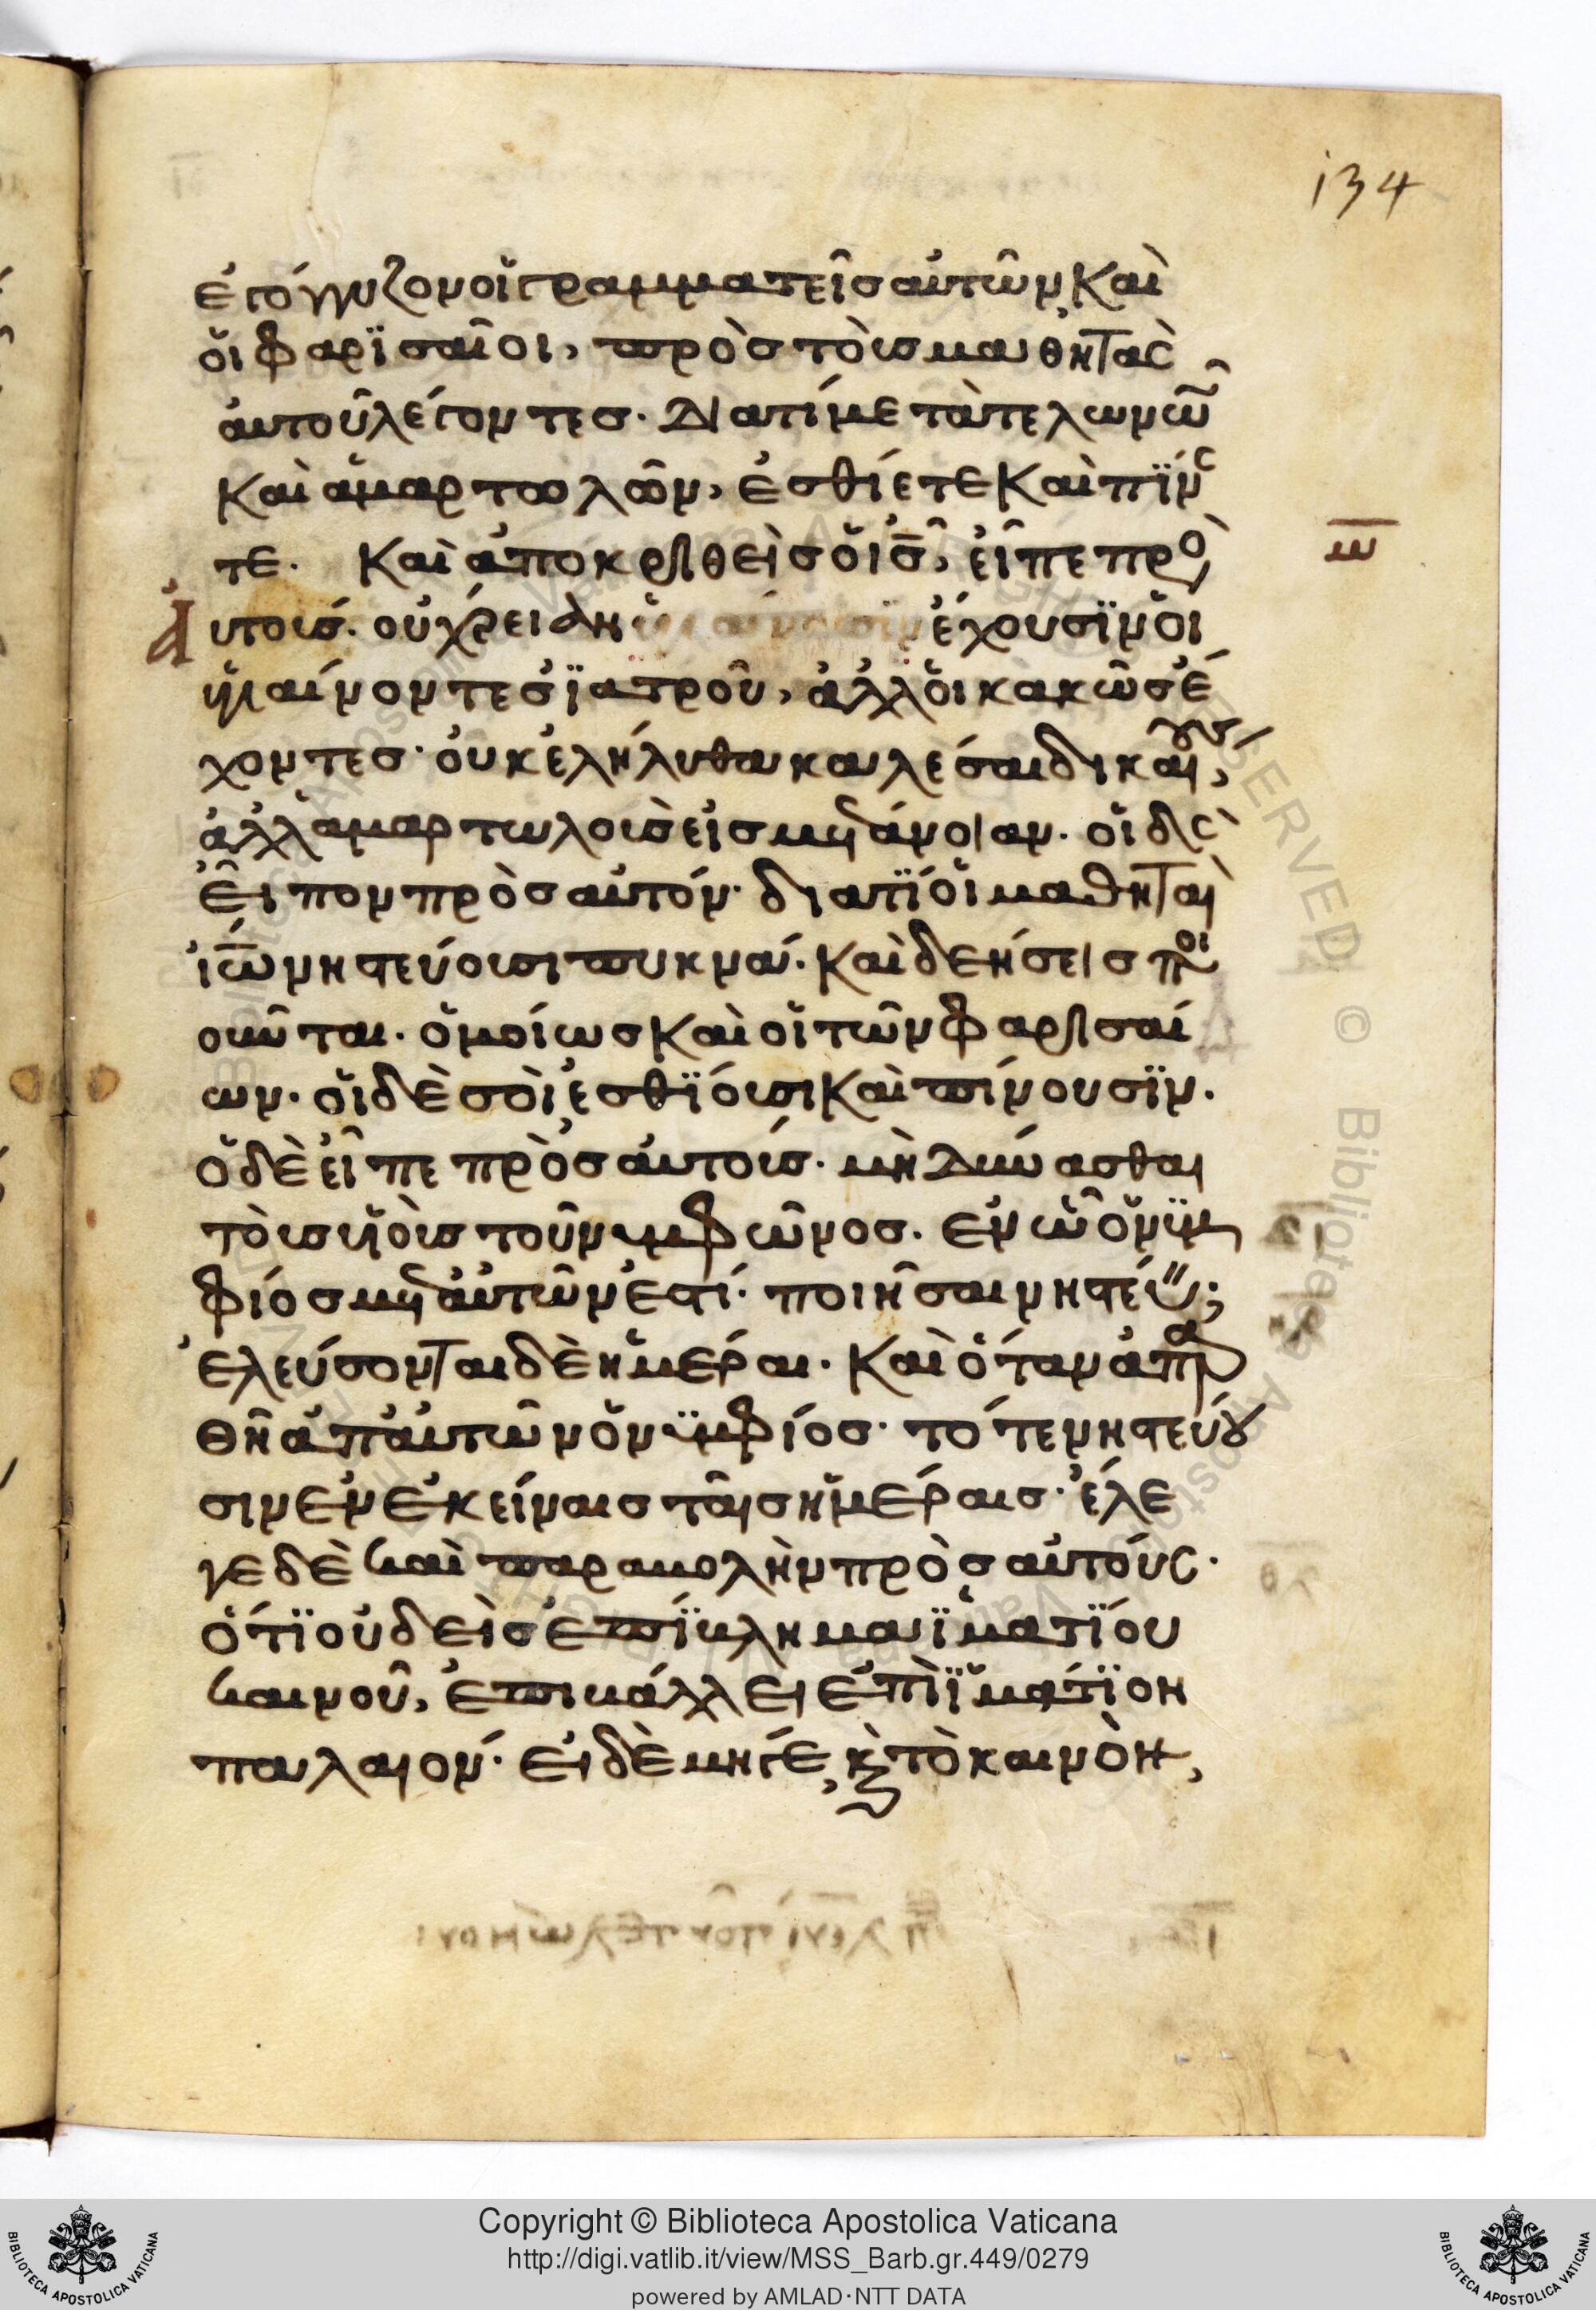 134
ἐγόγγυζον οἱ γραμματεῖσ αὐτῶν, καὶ
οἱ φαρϊσαῖοι, πρὸσ τοὺσ μαθητὰσ
αὐτοῦ λέγοντεσ. Διατί μετὰ τελωνῶν
καὶ ἁμαρτωλῶν, ἐσθίετε καὶ πϊνε
τε. Καὶ ἀποκριθεὶσ ὁ ι̅σ̅, εἶπε πρὸ
Αυτούσ. οὐ χρείαν ἔχουσϊν οἱ
ὑγιαίνοντεσ ϊατροῦ, ἀλλ' οἱ κακῶσ ἔ
χοντεσ· οὐκ ἐλήλυθα καλέσαι δικαίουσ,
ἀλλ' ἁμαρτωλοὺσ εἰσ μετάνοιαν. οἱ δὲ
εἶπον πρὸσ αὐτόν· διατϊ οἱ μαθηταὶ
ἰω̅ νηστεύουσι πυκνά. καὶ δεήσεισ ποι
οῦνται. ὁμοίωσ καὶ οἱ τῶν φαρισαί
ων. οἱ δὲ σοὶ ἐσθϊουσι καὶ πίνουσϊν.
ὁ δὲ εἶπε πρὸσ αὐτούσ. μὴ δύνασθαι
τοὺσ υἱοὺσ τοῦ νυμφῶνοσ. ἐν ᾧ ὁ νϋμ
φίοσ μετ αὐτῶν ἐστί. ποιῆσαι νηστεύειν;
ἐλεύσονται δὲ ἡμέραι. καὶ ὅταν ἀπαρ
θῆ ἀπ αὐτῶν ὁ νϋμφίοσ. τότε νηστεύου
σιν ἐν ἐκείναισ ταῖσ ἡμέραισ. ἔλε
γε δὲ καὶ παραβολὴν πρὸσ αὐτούσ.
ὅτϊ οὐδεὶσ ἐπϊβλημα ϊματϊου
καινοῦ, ἐπιβάλλει ἐπὶ ϊμάτϊον
παλαιόν. εἰ δὲ μήγε, κὲ τὸ καινὸν,
Copyright © Biblioteca Apostolica Vaticana
http://digi.vatlib.it/view/MSS_Barb.gr.449/0279
powered by AMLAD·NTT DATA
BIBLIOTECA APOSTOLICA VATICANA
BIBLIOTECA APOSTOLICA VATICANA